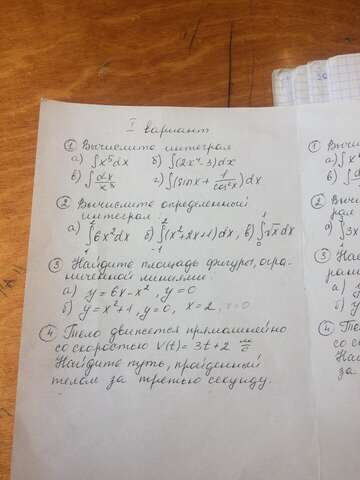 I вариант
① Вычислите интеграл
а) ∫x⁵dx б) ∫(2x⁴-3)dx
в) ∫ г) ∫(sinx + 1/cos²x)dx
② Вычислите определенный
интеграл:
а) ∫6x²dx б) ∫(x²+2x+1)dx, в) ∫√x dx
③ Найдите площадь фигуры, огра-
ниченной линиями:
а) y = 6x-x², y=0
б) y = x²+1, y=0, x=2, x=0
④ Тело движется прямолинейно
со скоростью V(t)= 3t+2 м/с
Найдите путь, пройденный
телом за третью секунду.
① Вычи
а) ∫x⁴
в) ∫
② Вычи
а) ∫3x
③ Най
а)
б)
④ Тело
со ск
Найд
за